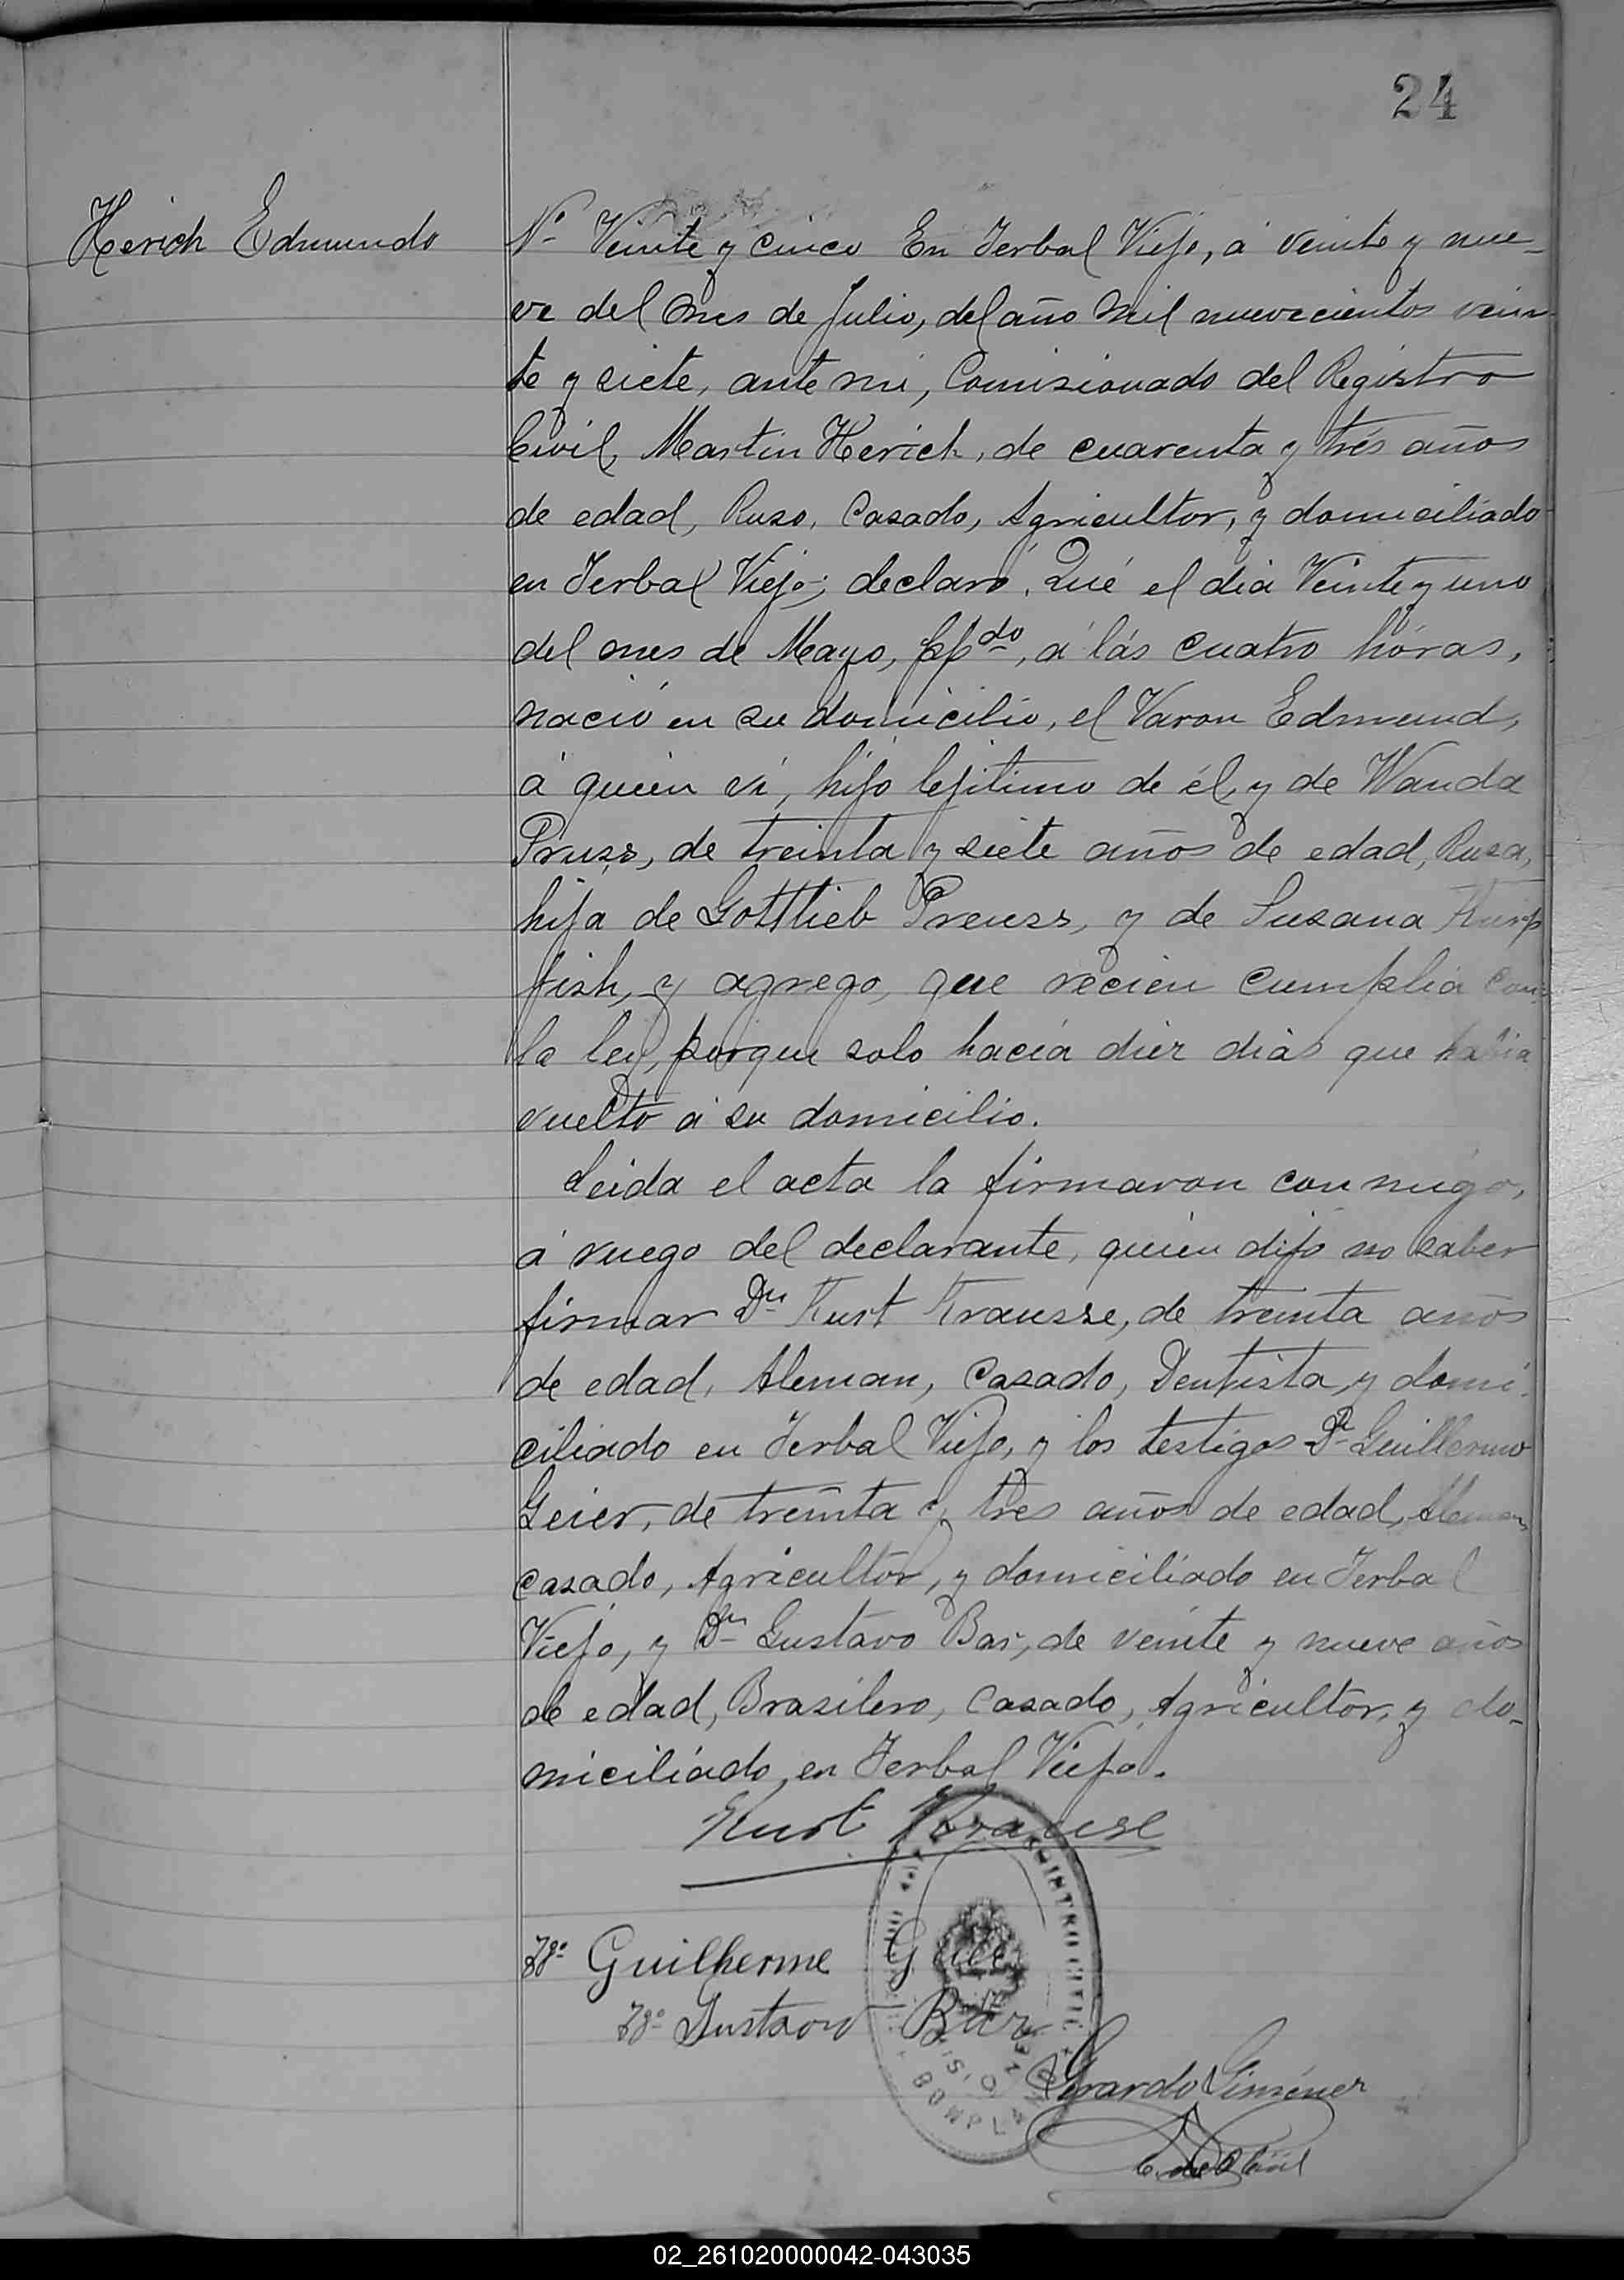 24
Herich Edmundo
Nº Veinte y cinco En Yerbal Viejo, á veinte y nue-
ve del mes de Julio, del año mil nuevecientos vein-
te y siete, ante mi, Comisionado del Registro
Civil, Martin Herich, de cuarenta y trés años
de edad, Ruso, Casado, Agricultor, y domiciliado
en Yerbal Viejo; declaró. Qué el día Veinte y uno
del mes de Mayo, ppdo, á lás cuatro hóras,
nació en su domicilio, el Varon Edmund,
á quien ví, hijo lejitimo de él, y de Wanda
Pruss, de treinta y siete años de edad, Rusa,
hija de Gottlieb Preuss, y de Susana
y agrego, que recien cumplia con
la ley, porque solo hacía diez días que habia
vuelto á su domicilio.
Leida el acta la firmaron conmigo,
á ruego del declarante, quien dijo no saber
firmar Dn Kurt Krausse, de treinta años
de edad, Aleman, Casado, Dentista, y domi-
ciliado en Yerbal Viejo, y los testigos Dn Guillermo
Geier, de treinta y tres años de edad, Aleman,
casado, Agricultor, y domiciliado en Yerbal
Viejo, y Dn Gustavo Bar, de veinte y nueve años
de edad, Brasilero, Casado, Agricultor, y do-
miciliado en Yerbal Viejo.
Kurt Krause
Tgo Guilherme
Tgo Gustavo Bär
Gerardo Giménez
BONPLAND
02_261020000042-043035